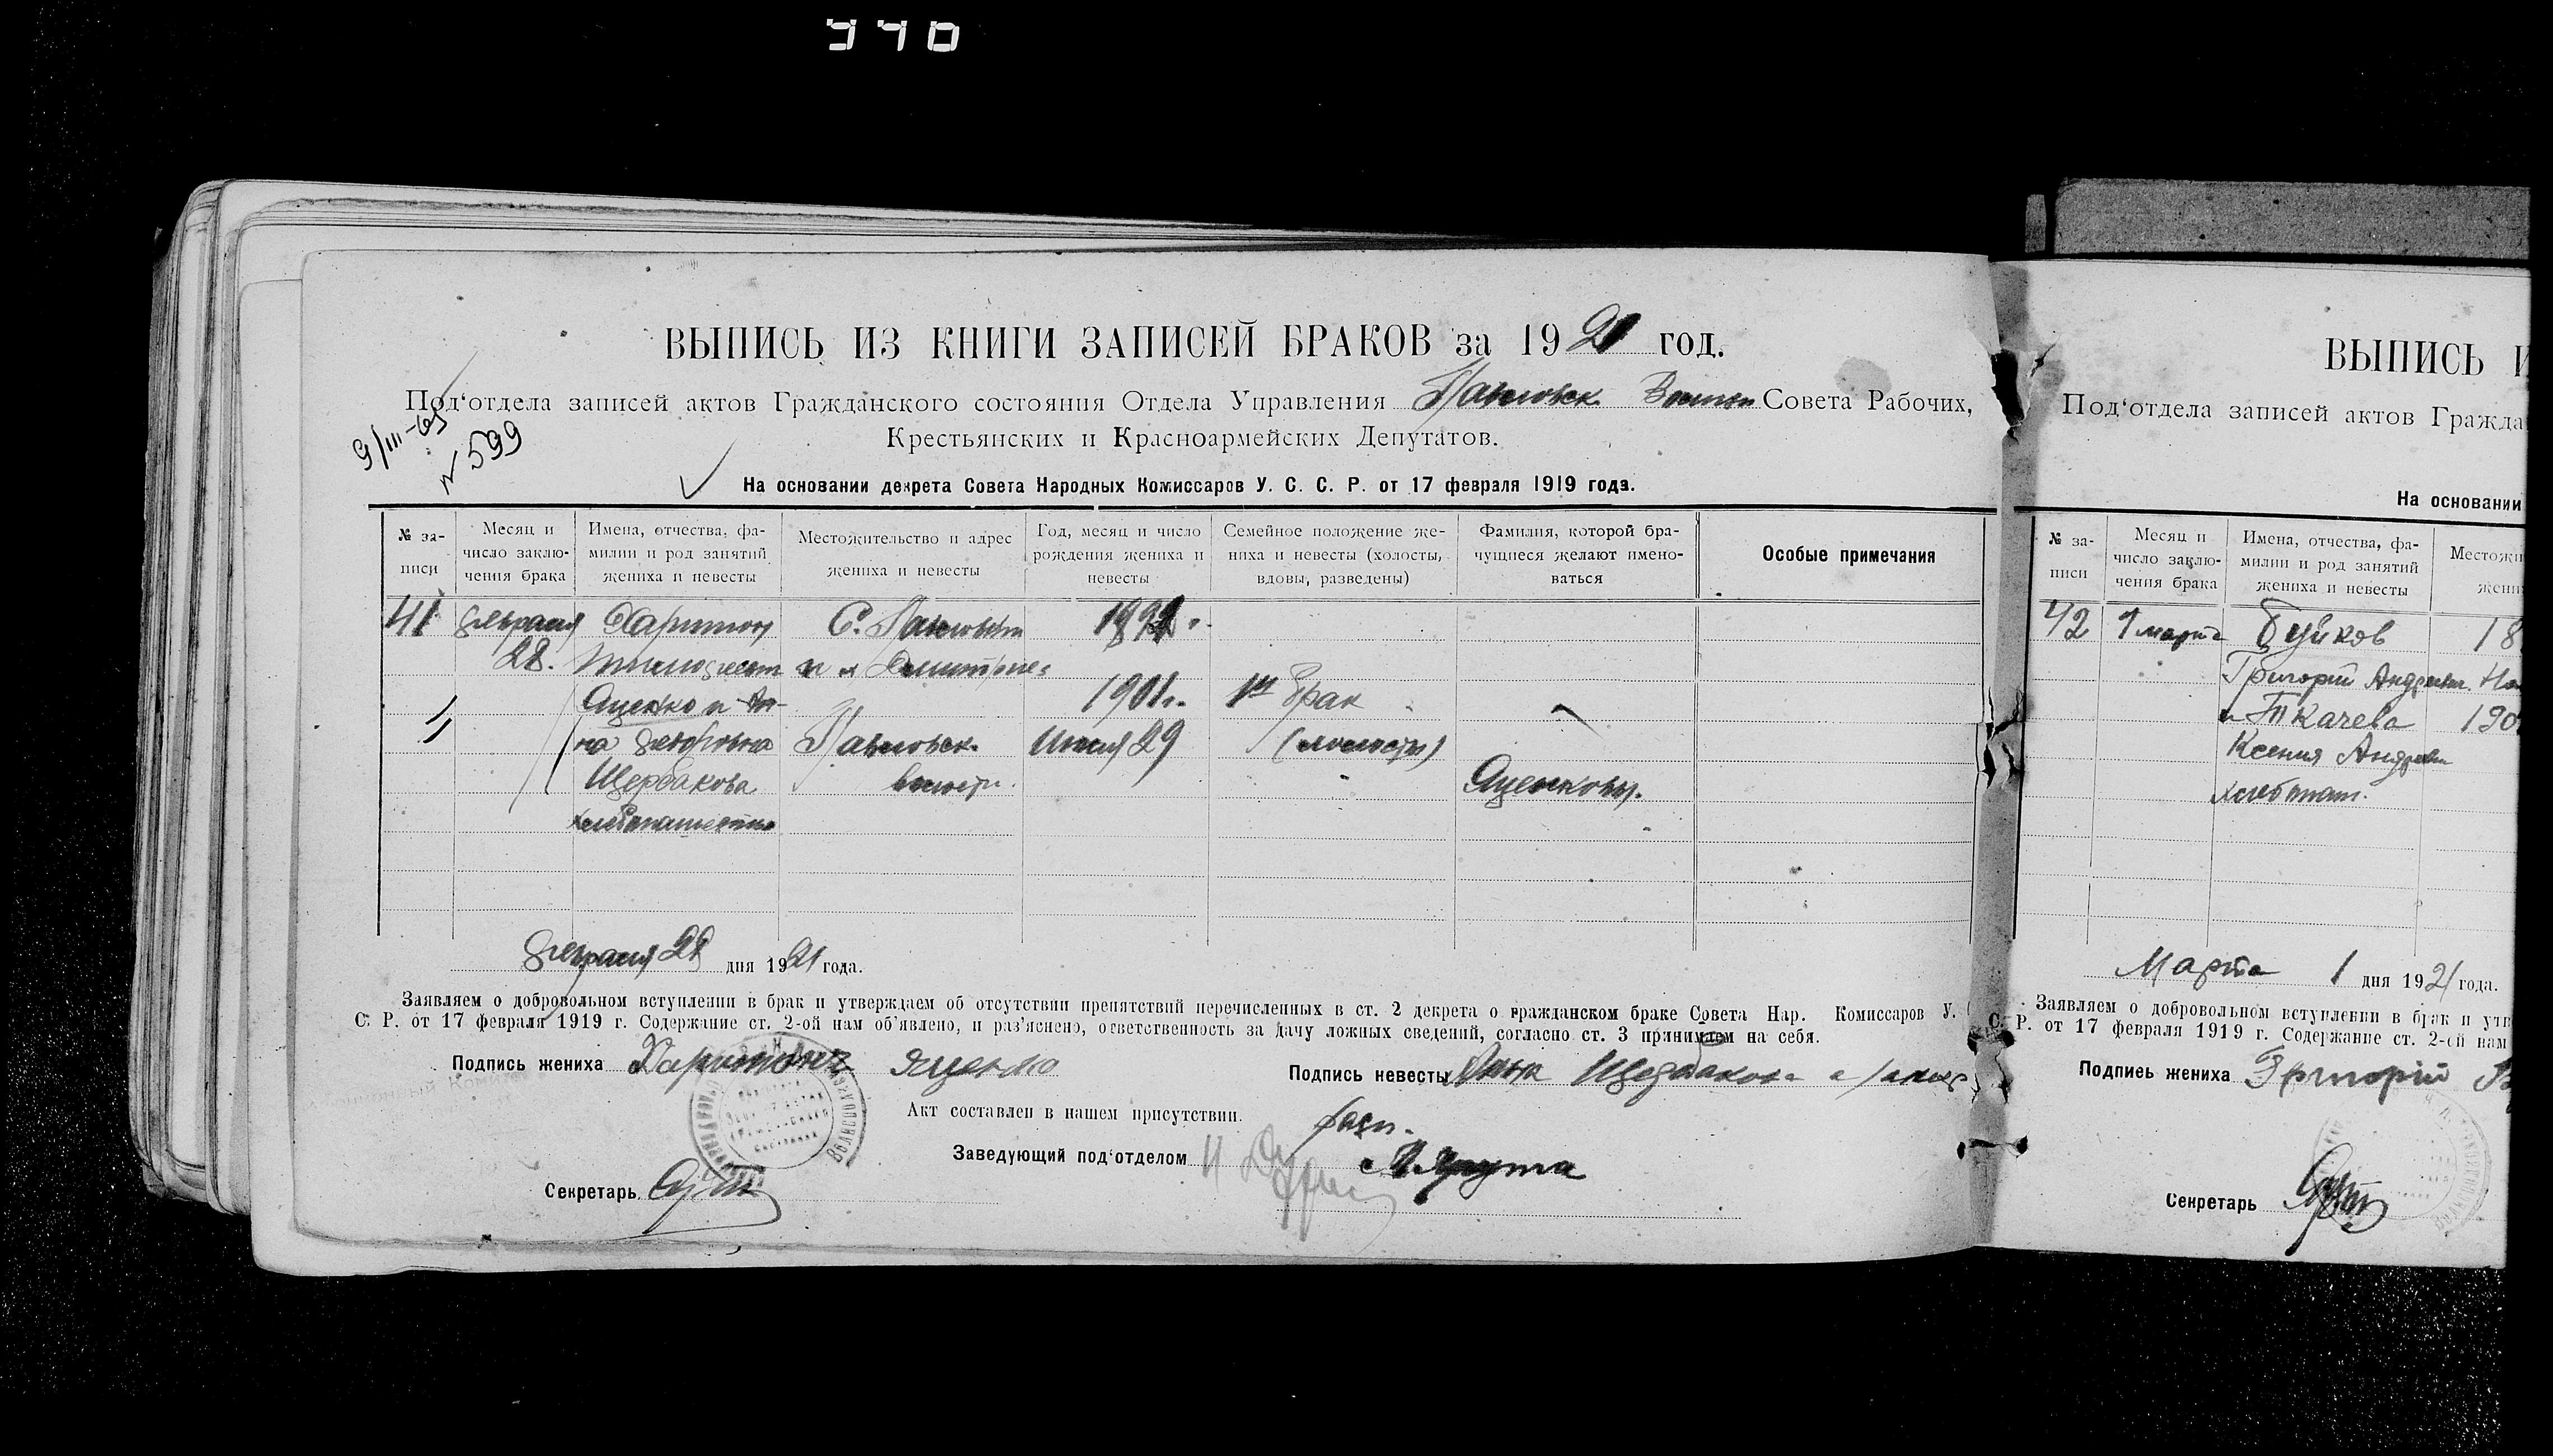 ВЫПИСЬ ИЗ КНИГИ ЗАПИСЕЙ БРАКОВ за 1921 год.
Под‘отдела записей актов Гражданского состояния Отдела Управления Павловск. Волисп Совета Рабочих,
Крестьянских и Красноармейских Депутатов.
9/III-65
№ 599
На основании декрета Совета Народных Комиссаров У. С. С. Р. от 17 февраля 1919 года.
№ за-
писи
Месяц и
число заклю-
чения брака
Имена, отчества, фа-
милии и род занятий
жениха и невесты
Местожительство и адрес
жениха и невесты
Год, месяц и число
рождения жениха и
невесты
Семейное положение же-
ниха и невесты (холосты,
вдовы, разведены)
Фамилия, которой бра-
чущиеся желают имено-
ваться
Особые примечания
41
февраля
28.
Харитон
Тимофеев
Яценко и Ан-
на Федоровна
Щербакова
хлебопашество
С. Павловки
Павловск.
волости.
1901г.
Июля 29
1й брак
(холосты)
Яценковы.
февраля 28 дня 1921 года.
Заявляем о добровольном вступлении в брак и утверждаем об отсутствии препятствий перечисленных в ст. 2 декрета о гражданском браке Совета Нар. Комиссаров У.
С. Р. от 17 февраля 1919 г. Содержание ст. 2-ой нам об‘явлено, и раз‘яснено, ответственность за дачу ложных сведений, согласно ст. 3 принимаем на себя.
Подпись жениха Харитон Яценко
Подпись невесты Анна Щербакова
Акт составлен в нашем присутствии.
Заведующий под‘отделом
Секретарь
ВЫПИСЬ И
Под‘отдела записей актов Гражда
На основании
№ за-
писи
Месяц и
число заклю-
чения брака
Имена, отчества, фа-
милии и род занятий
жениха и невесты
Местожи
жени
42
1 марта
Буйков
Григорий Андреев.
и Ткачева
Ксения Андреев
хлебопаш.
18
190
Марта 1 дня 1921 года.
Заявляем о добровольном вступлении в брак и утв
С. Р. от 17 февраля 1919 г. Содержание ст. 2-ой нам
Подпись жениха Григорій
Секретарь